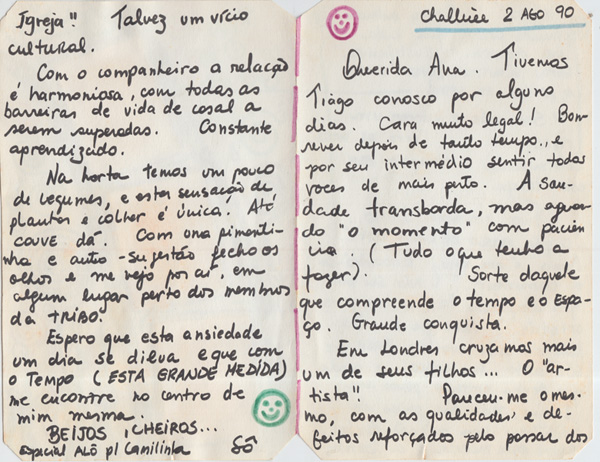 Igreja" Talvez um vício
cultural.
Com o companheiro a relação
é harmoniosa, com todas as
barreiras de vida de casal a
serem superadas. Constante
aprendizado.
Na horta temos um pouco
de legumes, e esta sensação de
plantar e colher é única. Até
couve dá. Com uma pimenti-
nha e auto-sujestão fecho os
olhos e me vejo por aí, em
algum lugar perto dos membros
da TRIBO.
Espero que esta ansiedade
um dia se dilua e que com
o Tempo (ESTA GRANDE MEDIDA)
me encontre no centro de
mim mesma.
BEIJOS, CHEIROS...
especial ALÔ p/ Camilinha Sô
2 AGO 90
Querida Ana. Tivemos
Tiago conosco por alguns
dias. Cara muito legal! Bom
rever depois de tanto tempo, e
por seu intermédio sentir todas
voces de mais perto. A sau-
dade transborda, mas aguar
do "o momento" com paciên
cia. (Tudo o que tenho a
fazer). Sorte daquele
que compreende o tempo e o Espa-
ço. Grande conquista.
Em Londres cruzamos mais
um de seus filhos... O "ar-
tista"! Pareceu-me o mes-
mo, com as qualidades e de-
feitos reforçados pelo passar dos